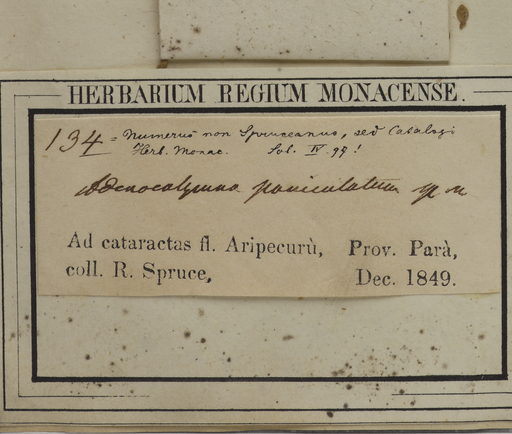 HERBARIUM REGIUM MONACENSE.
134 = Numerus non Spruceanus, sed Catalogi
Herb. Monac. Sol. IV. 97!
Adenocalymna paniculatum sp n
Ad cataractas fl. Aripecurù, Prov. Parà,
coll. R. Spruce, Dec. 1849.